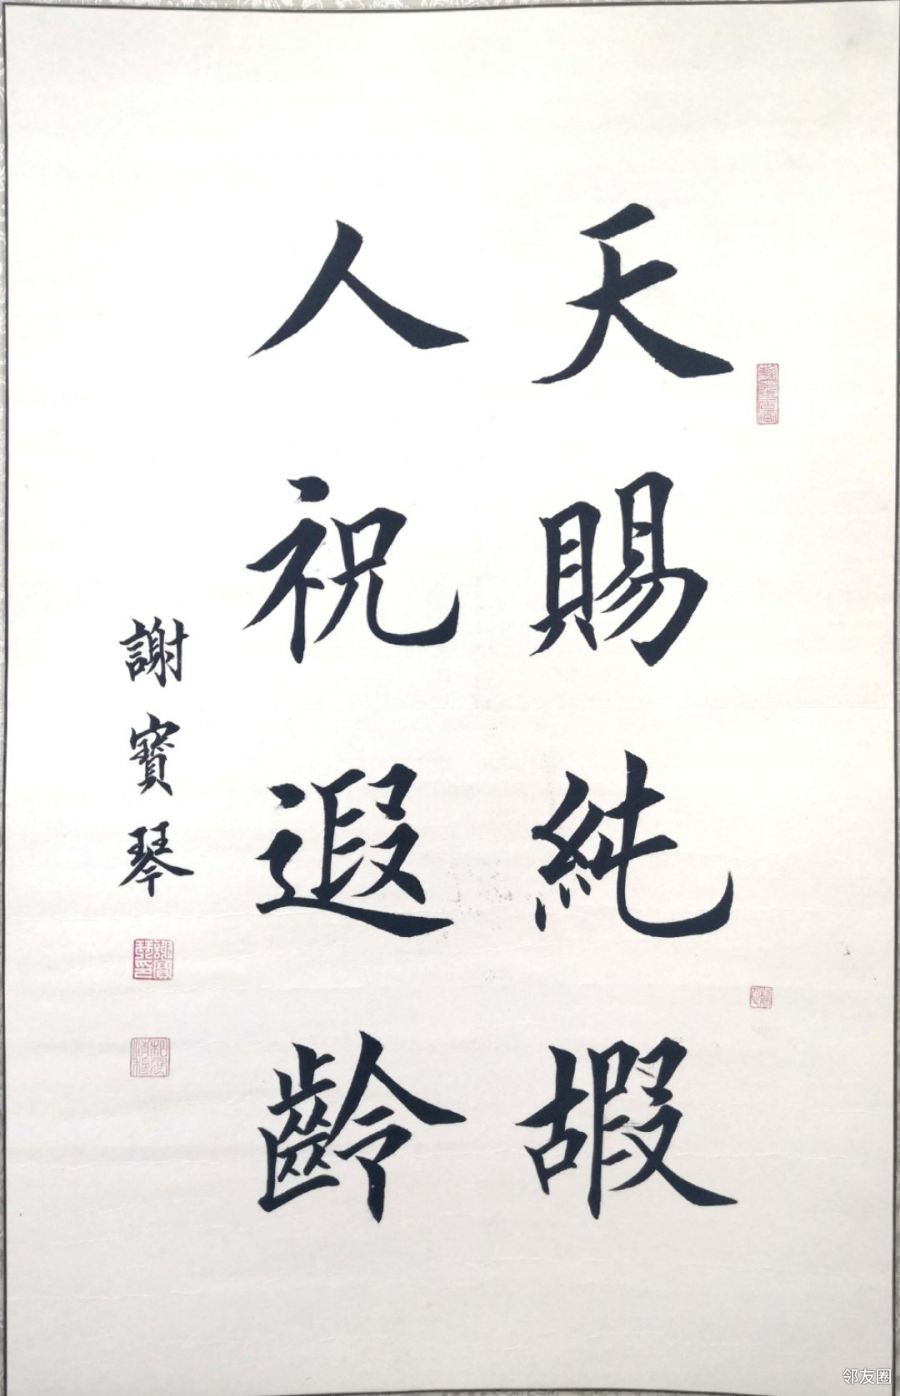 天賜純嘏
人祝遐齡
謝寶琴
邻友圈